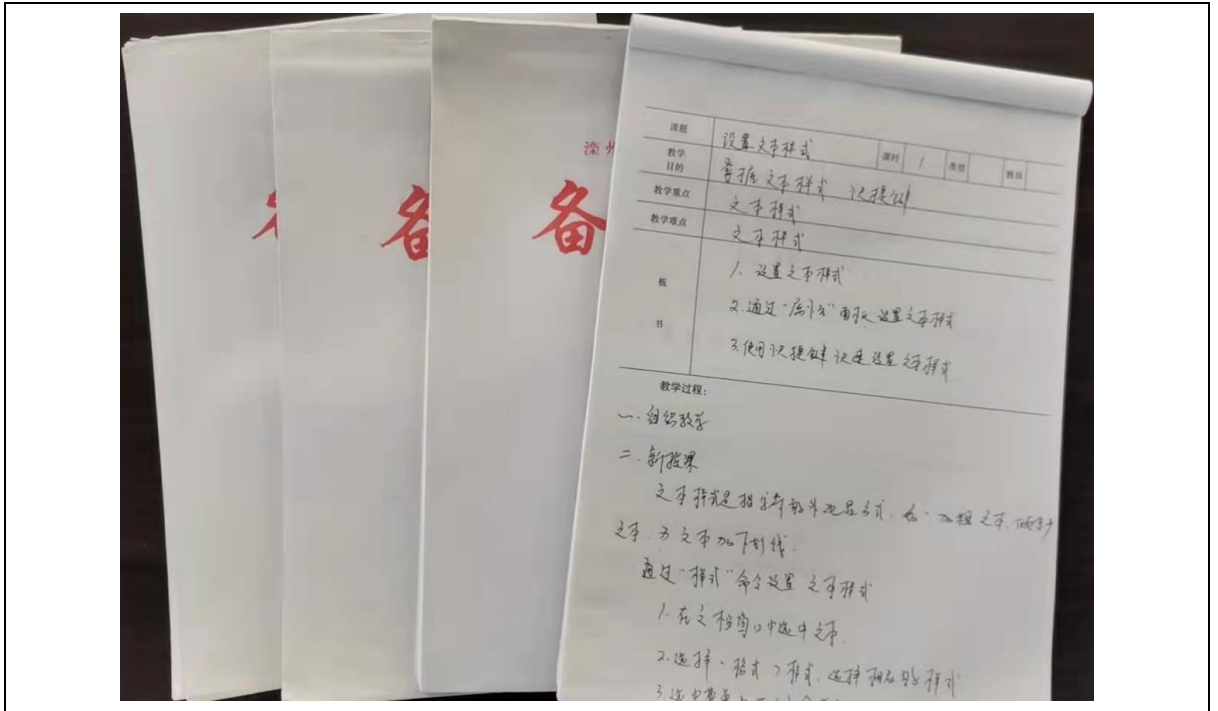 滦州
备
备
备
课题 设置文本样式 课时 1 类型 教具
教学目的 掌握文本样式 快捷键
教学重点 文本样式
教学难点 文本样式
板书
1. 设置文本样式
2. 通过“属性”面板设置文本样式
3. 使用快捷键快速设置文本样式
教学过程:
一. 组织教学
二. 新授课
文本样式是指字符的外观显示方式. 如. 加粗文本. 倾斜
文本. 为文本加下划线.
通过“样式”命令设置文本样式
1. 在文档窗口中选中文本.
2. 选择. 格式>样式. 选择相应的样式
3. 选中菜单